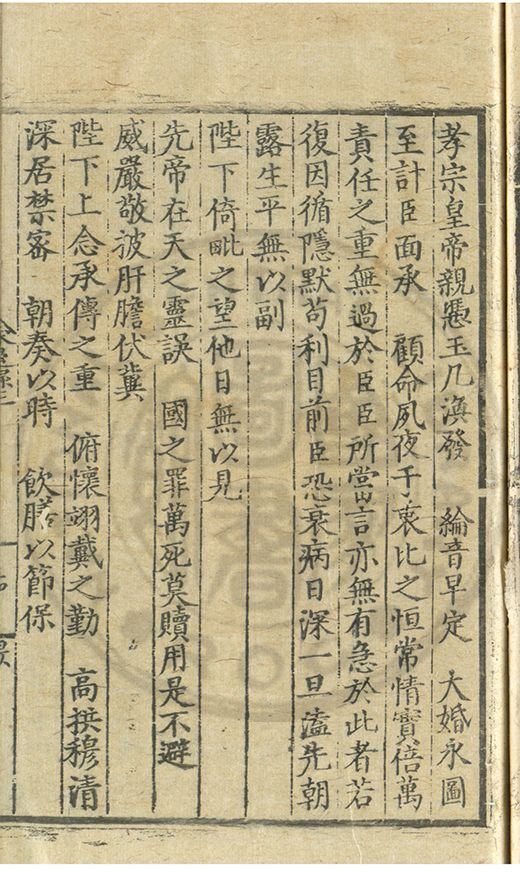 孝宗皇帝親憑玉几渙發　綸音早定　大婚永圖
至計臣面承　顧命夙夜于衷比之恒常情實倍萬
責任之重無過於臣臣所當言亦無有急於此者若
復因循隱默苟利目前臣恐衰病日深一旦溘先朝
露生平無以副
陛下倚毗之望他日無以見
先帝在天之靈誤　國之罪萬死莫贖用是不避
威嚴敬披肝膽伏冀
陛下上念承傳之重　俯懷翊戴之勤　高拱穆清
深居禁密　朝奏以時　飲膳以節保